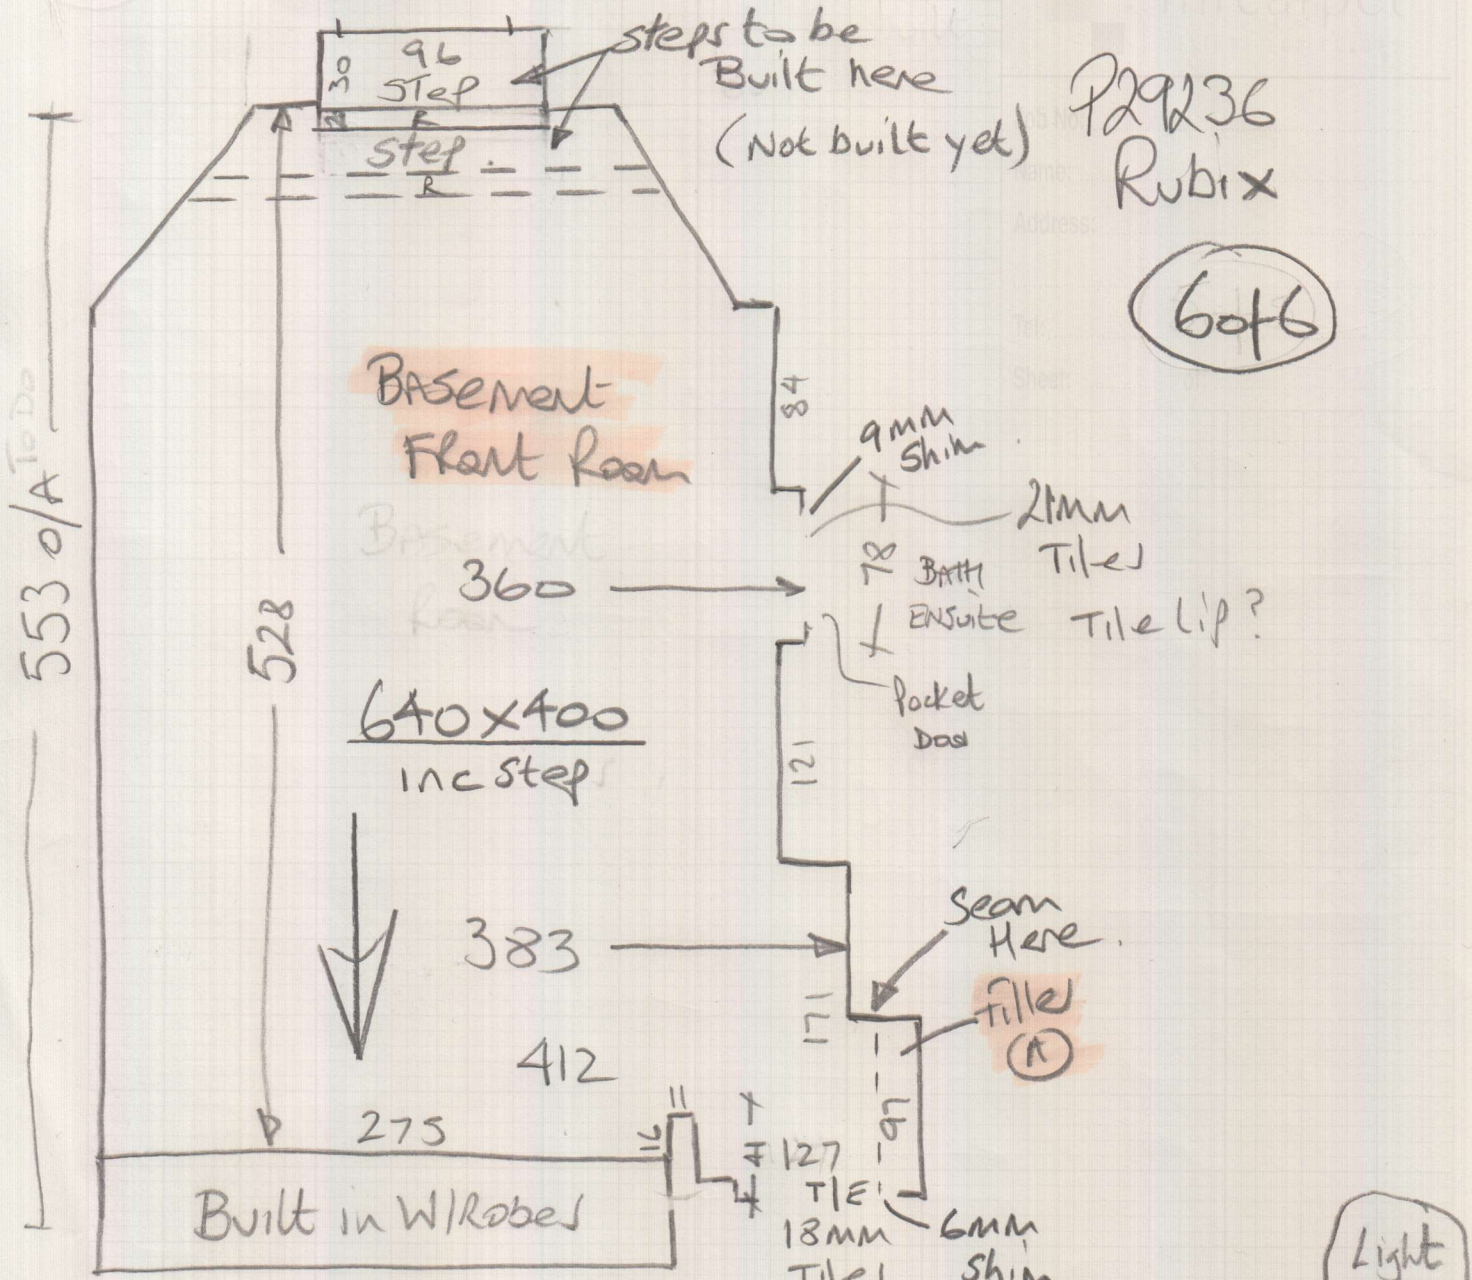 96
30
STEP
R
step.
R
steps to be
Built here
(Not built yet)
P29236
Rubix
6 of 6
Job No
Name:
Address:
Sheet:
To Do
553 o/A
528
Basement
Front Room
Basement
Room
84
9mm
Shim
21mm
Tiles
78
BATH
ENSUITE
Tile Lip?
360
Pocket
Door
640x400
inc Steps
121
383
Seam
Here.
Filler
A
171
412
97
275
11
16
127
T/E
18mm
Tiles
6mm
Shim
Built in W/Robes
Light